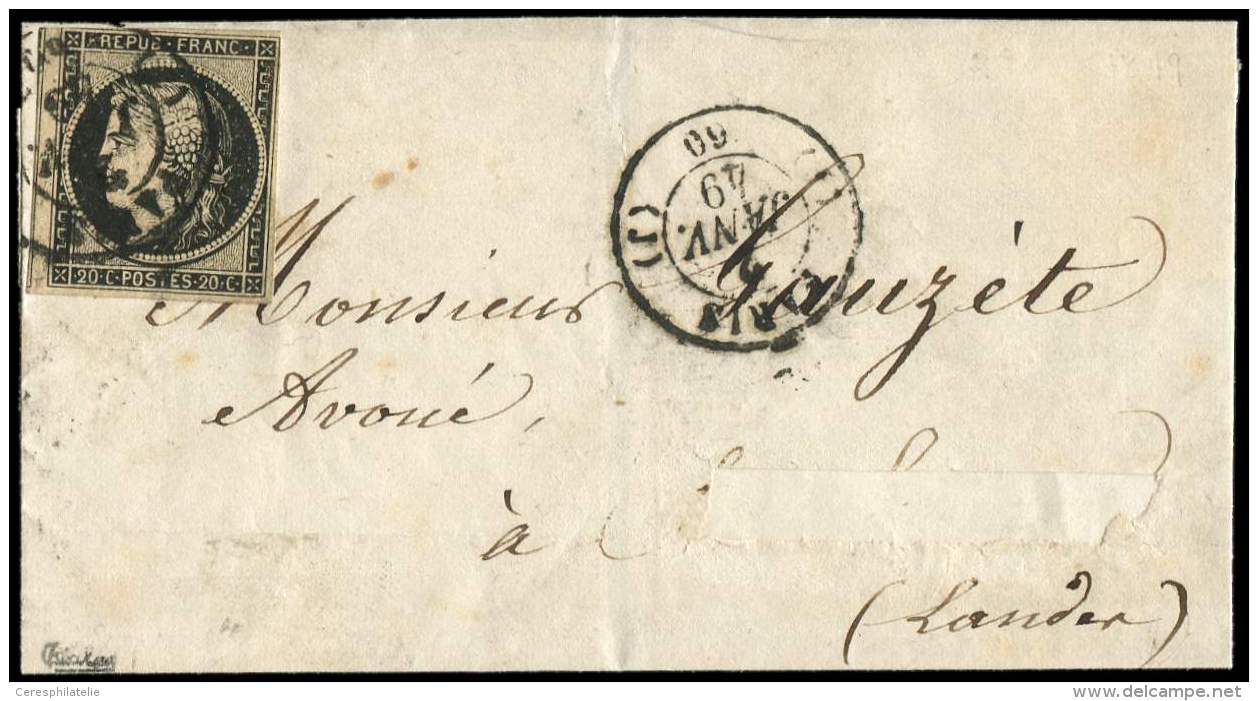 REPUB·FRANC·
20·C·POSTES·20·C·
60
49
JANV.
(J)
PARIS
Monsieur Gauzéte
Avoué,
à
(Landes)
Ceresphilatelie
www.delcampe.net